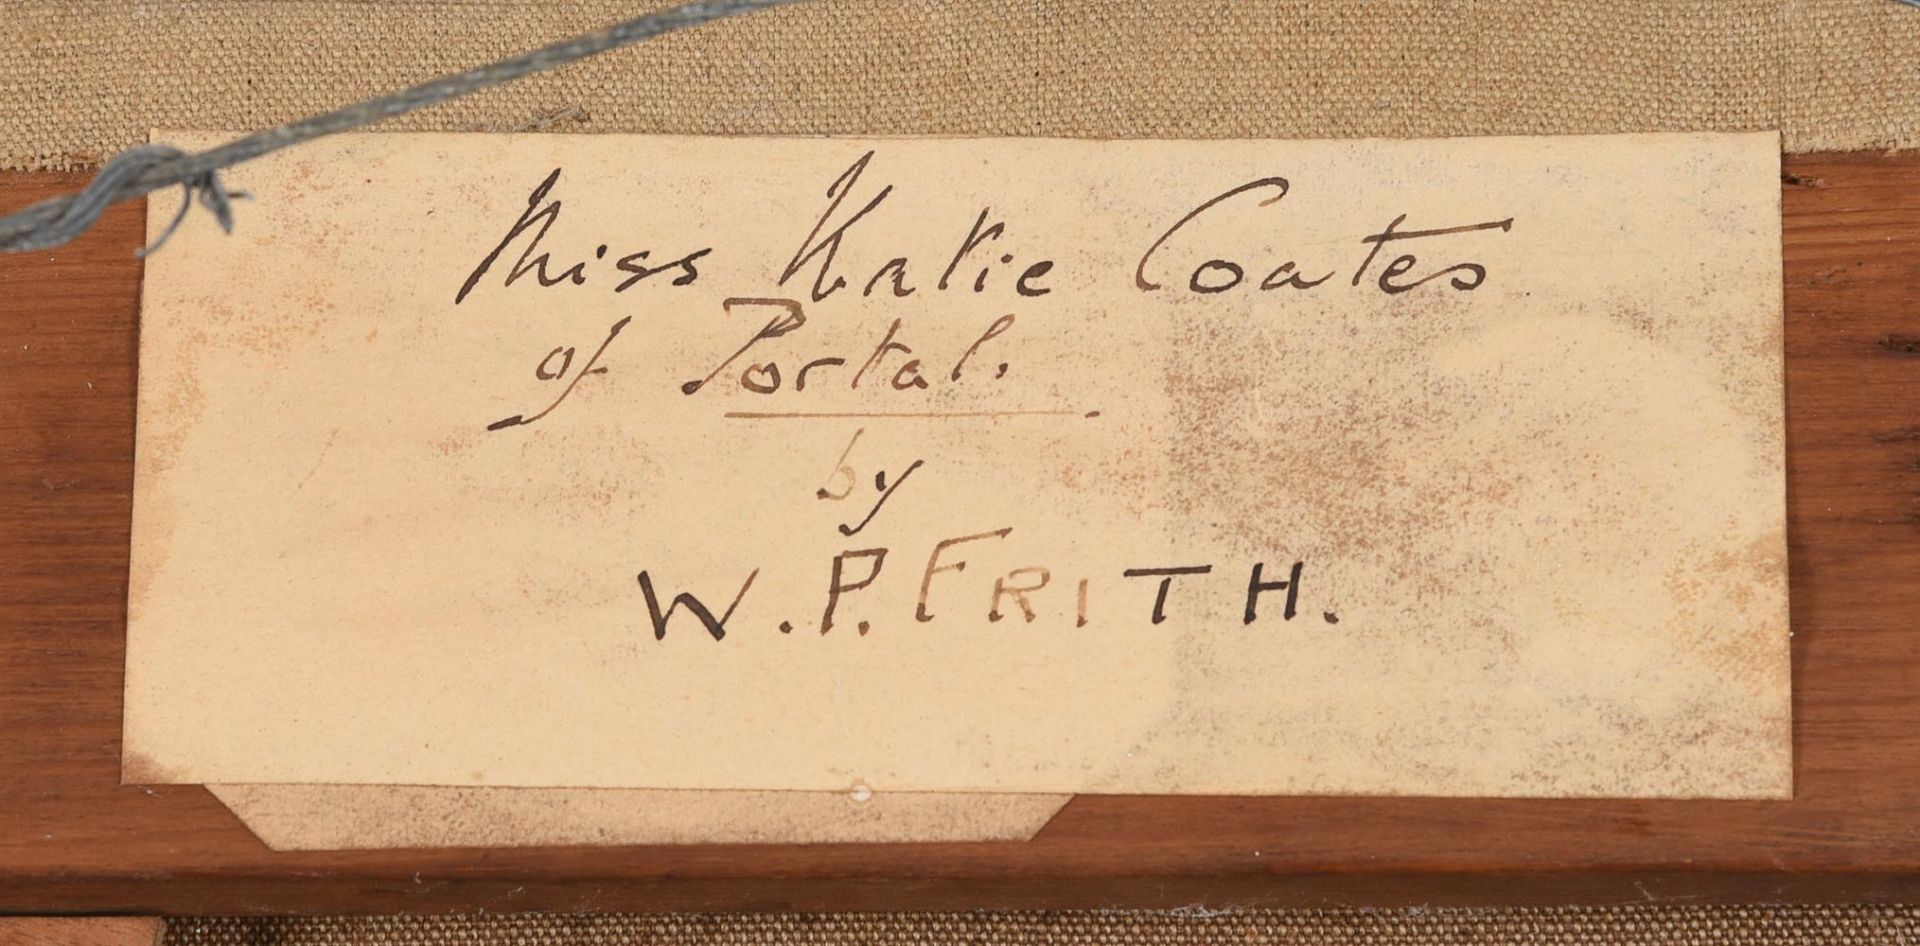 Miss Katie Coates
of Portal.
by
W. P. FRITH.